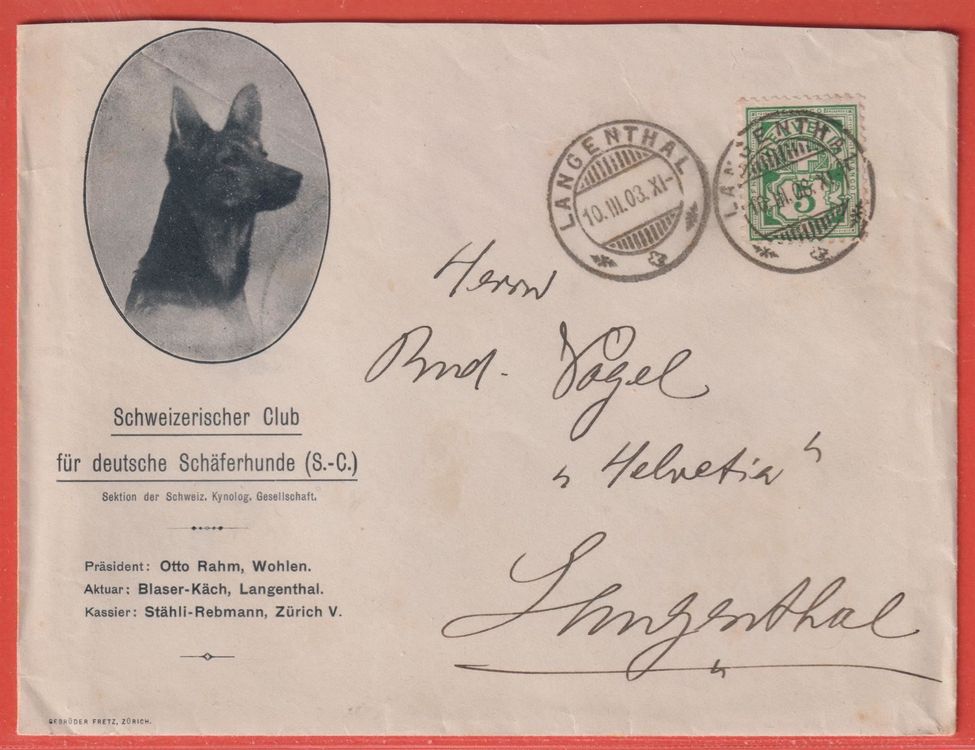 Schweizerischer Club
für deutsche Schäferhunde (S.-C.)
Sektion der Schweiz. Kynolog. Gesellschaft.
Präsident: Otto Rahm, Wohlen.
Aktuar: Blaser-Käch, Langenthal.
Kassier: Stähli-Rebmann, Zürich V.
GEBRÜDER FRETZ, ZÜRICH.
LANGENTHAL
10.III.03.XI-
LANGENTHAL
10.III.03.XI-
5
Herrn
Rud. Vogel
„Helvetia“
Langenthal